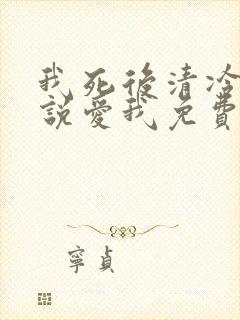 我死後清冷
說愛我免費
寧貞